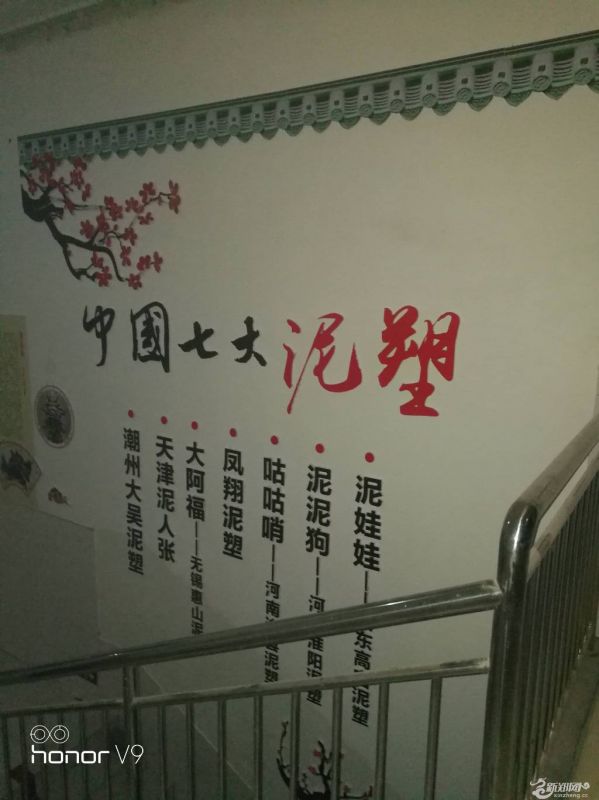 中國七大泥塑
泥娃娃——东高泥塑
泥泥狗——河淮阳泥塑
咕咕哨——河南县泥塑
凤翔泥塑
大阿福——无锡惠山泥
天津泥人张
潮州大吴泥塑
honor V9
新郑网
xinzheng.cc